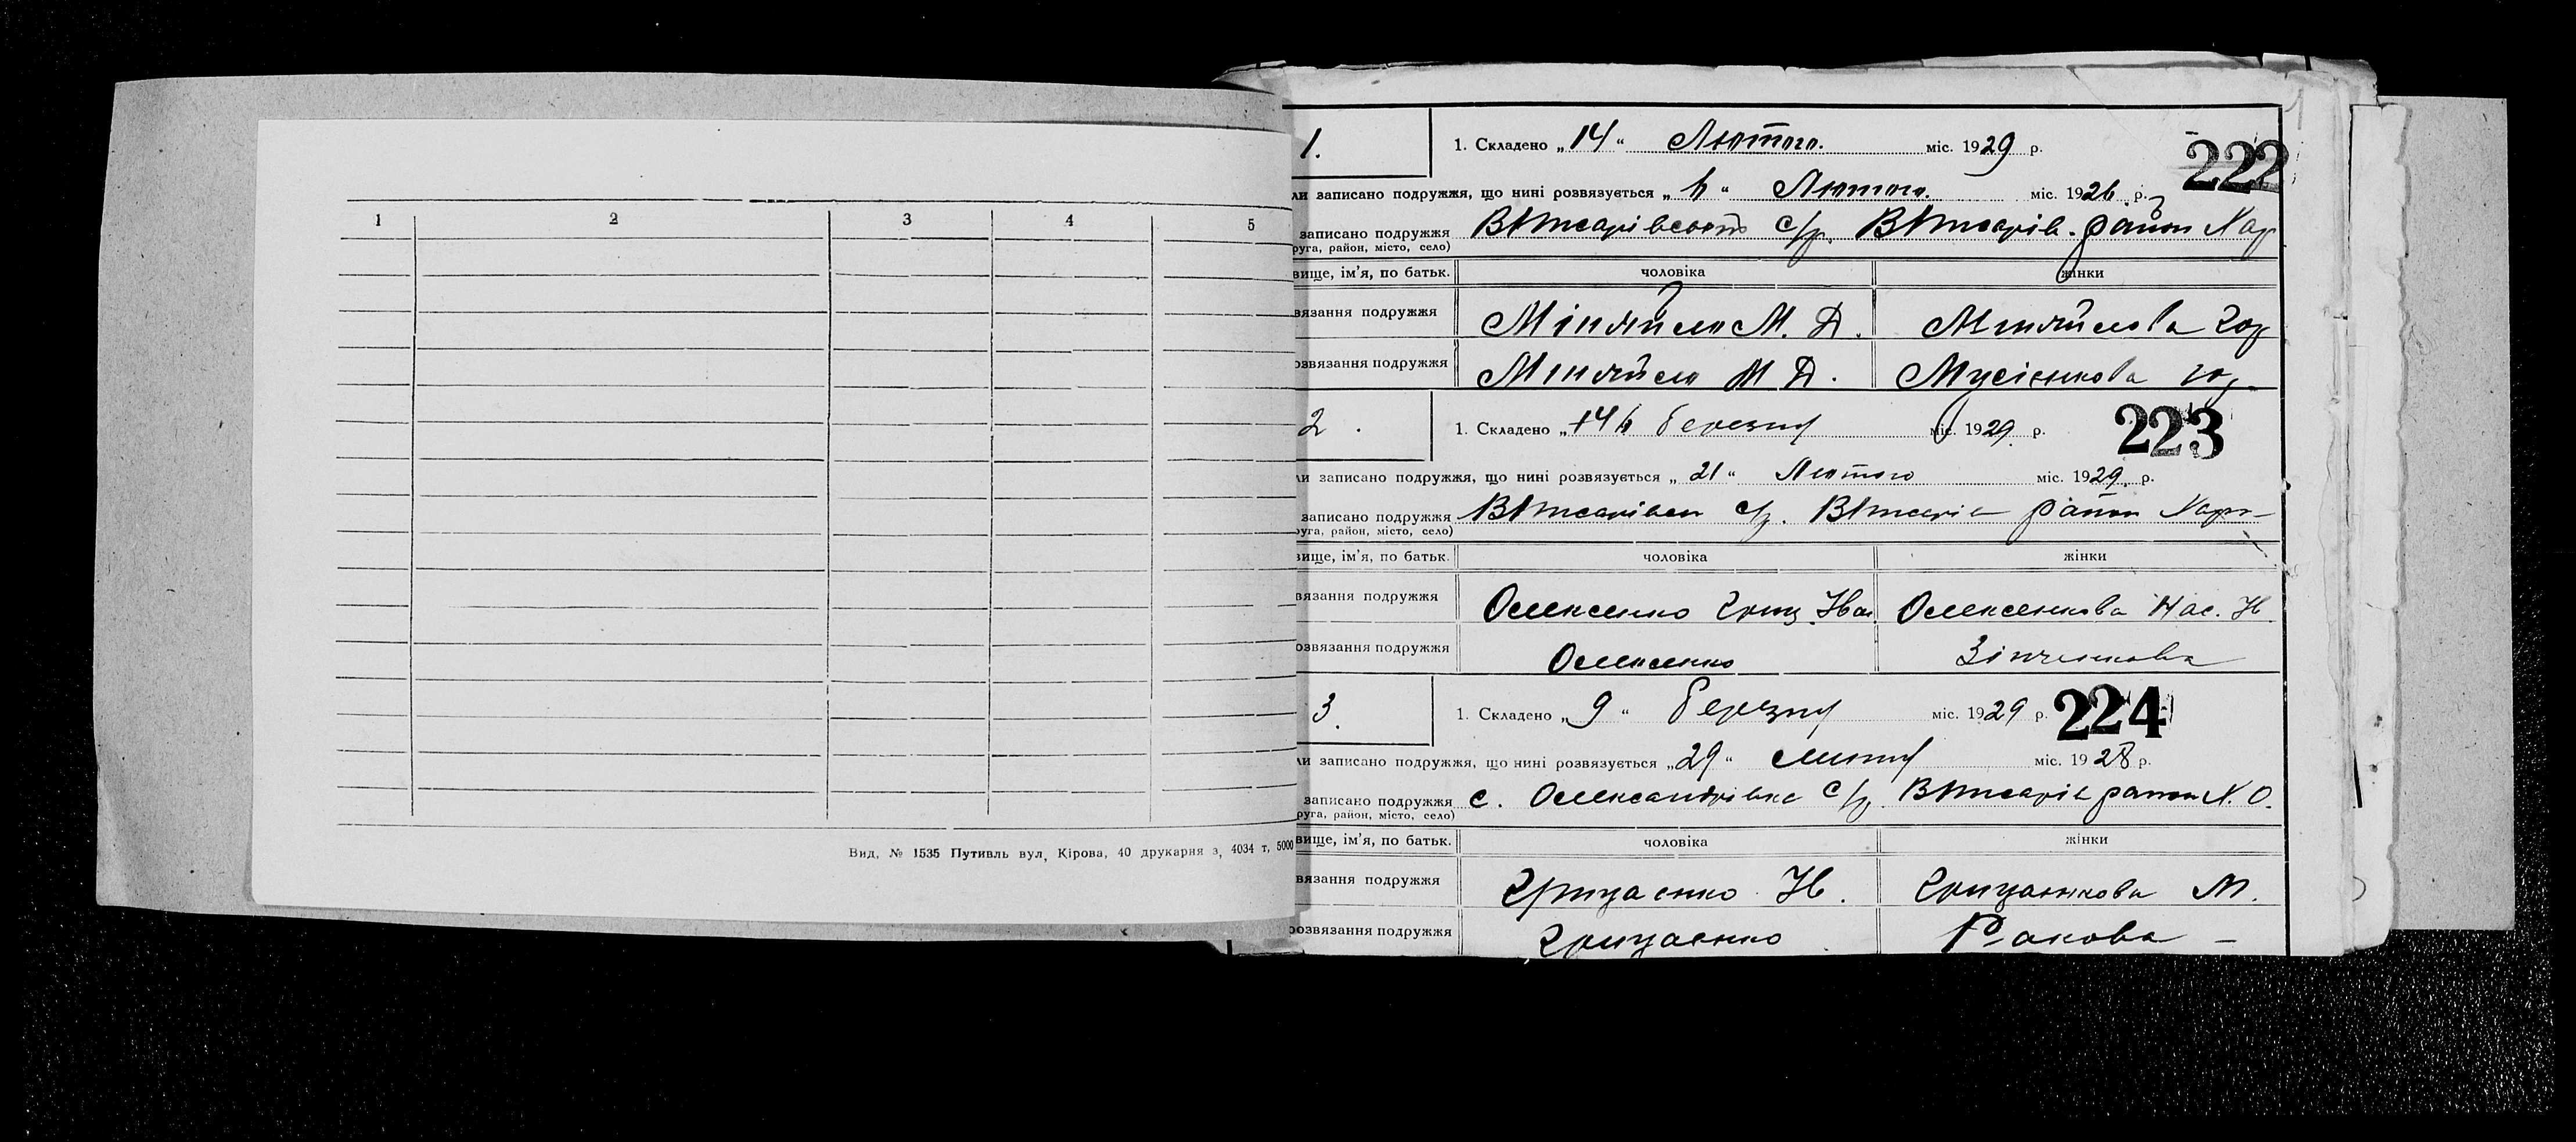 1 2 3 4 5
Вид. № 1535 Путивль вул, Кірова, 40 друкарня з, 4034 т, 5000
1.
1. Складено „14“ Лютого. міс. 1929 р.
222
ли записано подружжя, що нині розвязується „6“ Лютого. міс. 1926 р.
записано подружжя с/р. район Хар
руга, район, місто, село)
вище, ім'я, по батьк. чоловіка жінки
вязання подружжя Міняйло М. Д. Міняйлова
озвязання подружжя Міняйло М Д. Мусієнкова
2.
1. Складено „ 6 березня міс. 1929 р.
223
ли записано подружжя, що нині розвязується „21“ Лютого міс. 1929. р.
записано подружжя с/р. район Харк
руга, район, місто, село)
вище, ім'я, по батьк. чоловіка жінки
вязання подружжя Олексенко Гриц. Іван Олексенкова Нас. І
озвязання подружжя Олексенко Зінченкова
3.
1. Складено „9“ березня міс. 1929 р.
224
ли записано подружжя, що нині розвязується „29“ липня міс. 1928 р.
записано подружжя с. Олександрівка с/р. район Х. О.
руга, район, місто, село)
вище, ім'я, по батьк. чоловіка жінки
вязання подружжя Грицаєнко І. Грицаєнкова М.
розвязання подружжя Грицаєнко Ракова –